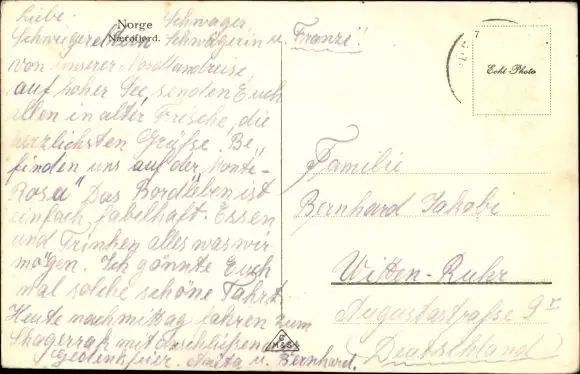 Norge
Nærøfjord.
Liebe Schwager,
Schwiegereltern Schwägerin u. Franzi!
von unserer Nordlandreise
auf hoher See, senden Euch
allen in alter Frische, die
herzlichsten Grüße. Be-
finden uns auf der "Monte-
Rosa" Das Bordleben ist
einfach fabelhaft. Essen
und Trinken alles was wir
mögen. Ich gönnte Euch
mal solche schöne Fahrt.
Heute nachmittag fahren zum
Skagerrak mit anschließen
Gedenkfeier. Anita u. Bernhard.
7
Echt Photo
Familie
Bernhard Jakobi
Witten-Ruhr
Augustastraße 9 I
(Deutschland)
M&S